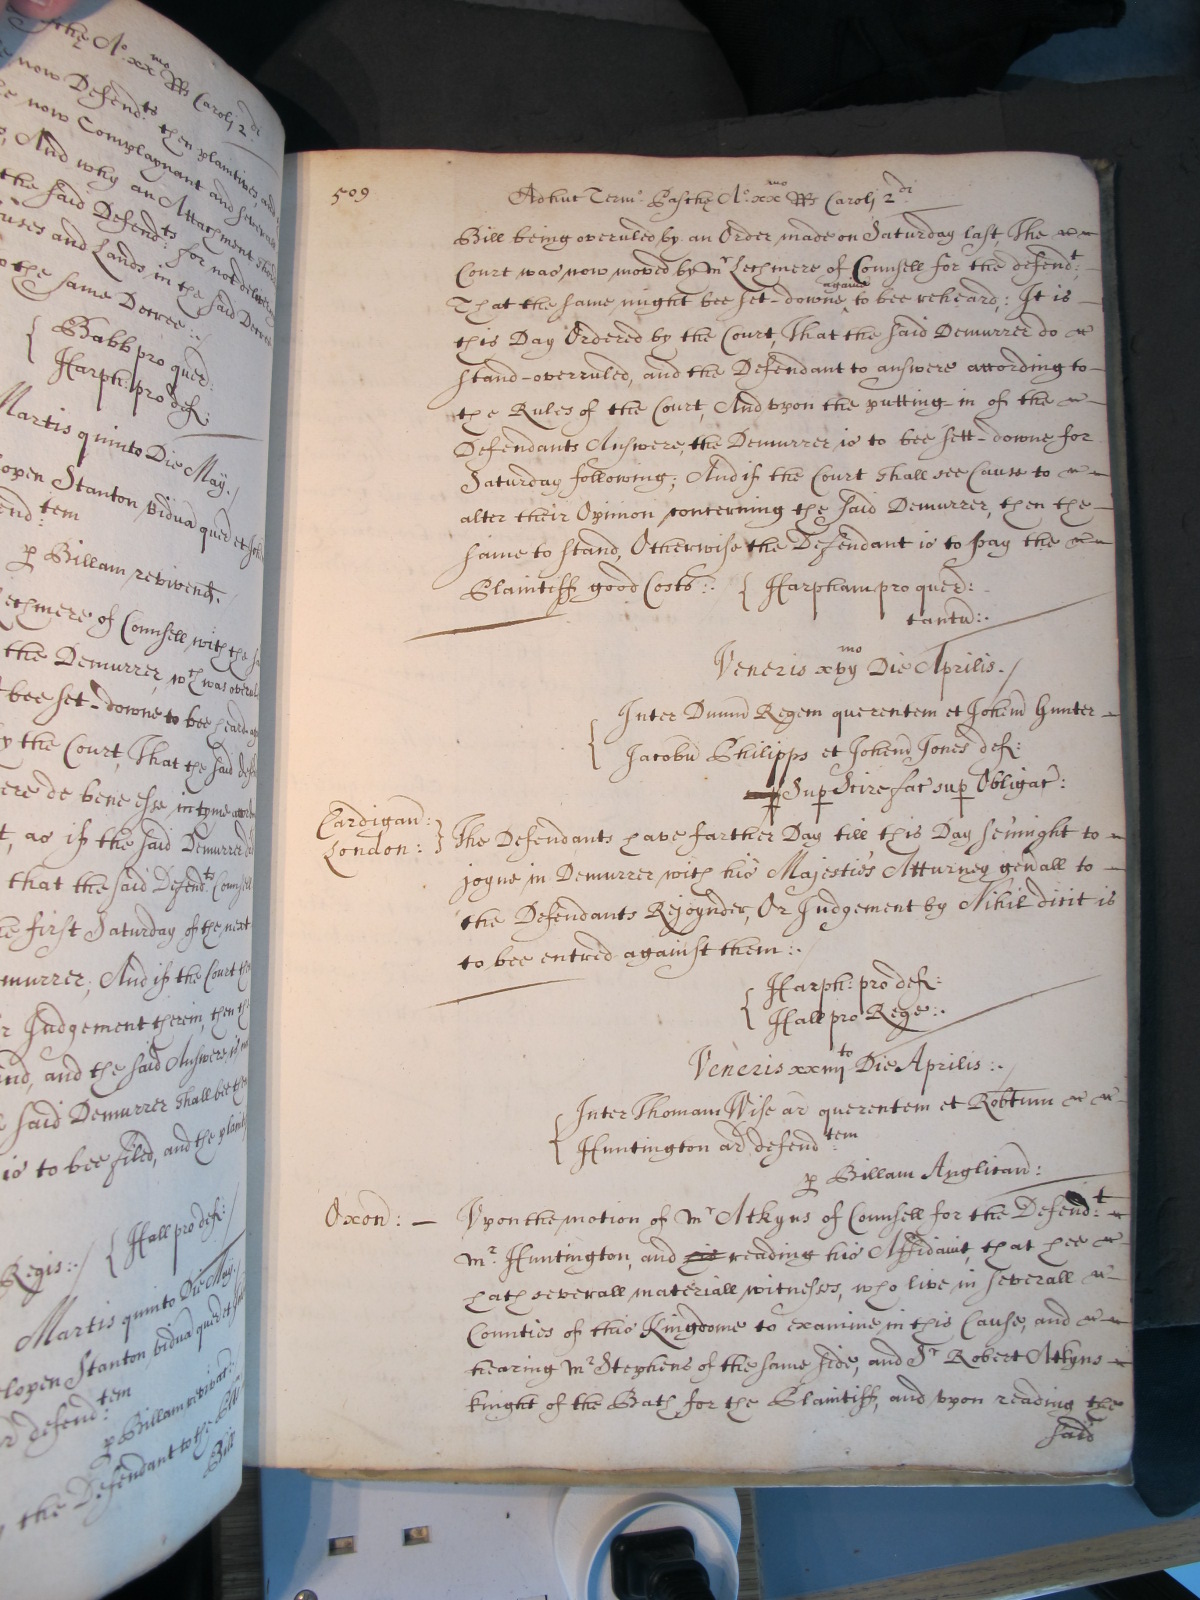 the Ao. xxmo Rs Caroli 2di
now Defendts. then plaintives, and
now Complaynant and severall
And why an Attachment should
the said Defendts for not deliver
uses and Lands in the said Decree
the same Decree:.
Babb pro quer:
Harph: pro def:
Martis quinto Die May./
lopen Stanton vidua quer et Joh
end:tem
p Billam revivend./
Lechmere of Counsell with the
the Demurrer, wch was overul
bee set-downe to bee heard
by the Court, That the said def
ere de bene esse in tyme
as if the Said Demurrer
that the said Defendts Counsell
first Saturday of the next
murrer; And if the Court
Judgement therein, then the
and the said Answere
said Demurrer shall bee then
is to bee filed, and the plaint
Hall pro def:
Regis:./
Martis quinto Die May./
elopen Stanton vidua quer et
defend:tem
p Billam revivat:
the Defendant to the Bill
Bill
509
Adhuc Termo. Pasche Ao. xxmo Rs Caroli 2di
Bill being overuled by an Order made on Saturday last, The
Court was now moved by Mr Lechmere of Counsell for the defendt:
That the same might bee set-downe againe to bee reheard; It is
this Day Ordered by the Court, That the said Demurrer do
stand-overruled, and the Defendant to answere according to
the Rules of the Court, And upon the putting-in of the
Defendants Answere, the Demurrer is to bee sett-downe for
Saturday following; And if the Court shall see Cause to
alter their Opinion concerning the said Demurrer, then the
same to stand, Otherwise the Defendant is to pay the
Plaintiff good Costs:. { Harpham pro quer:
tantu:.
Veneris xvijmo Die Aprilis./
Inter Dnum Regem querentem et Johem Hunter
Jacobu Philipps et Johem Jones def:
Sup Scire fac sup Obligac:
Cardigan:
London: }
The Defendants have farther Day till this Day Seinight to
joyne in Demurrer with his Majesties Atturney genall to
the Defendants Rejoynder, Or Judgement by Nihil dicit is
to bee entred against them:.
Harph: pro def:
Hall pro Rege:.
Veneris xxiiijto Die Aprilis:.
Inter Thomam Wise ar querentem et Robtum
Huntington ar defendtem:
p Billam Anglican:
Oxon: —
Vpon the motion of Mr Atkyns of Counsell for the Defend:t
Mr. Huntington, and reading his Affidavit, that hee
hath severall materiall witnesses, who live in severall
Counties of this Kingdome to examine in this Cause, and
hearing Mr Stephens of the same side, and Sr Robert Atkyns
knight of the Bath for the Plaintiff, and upon reading the
said